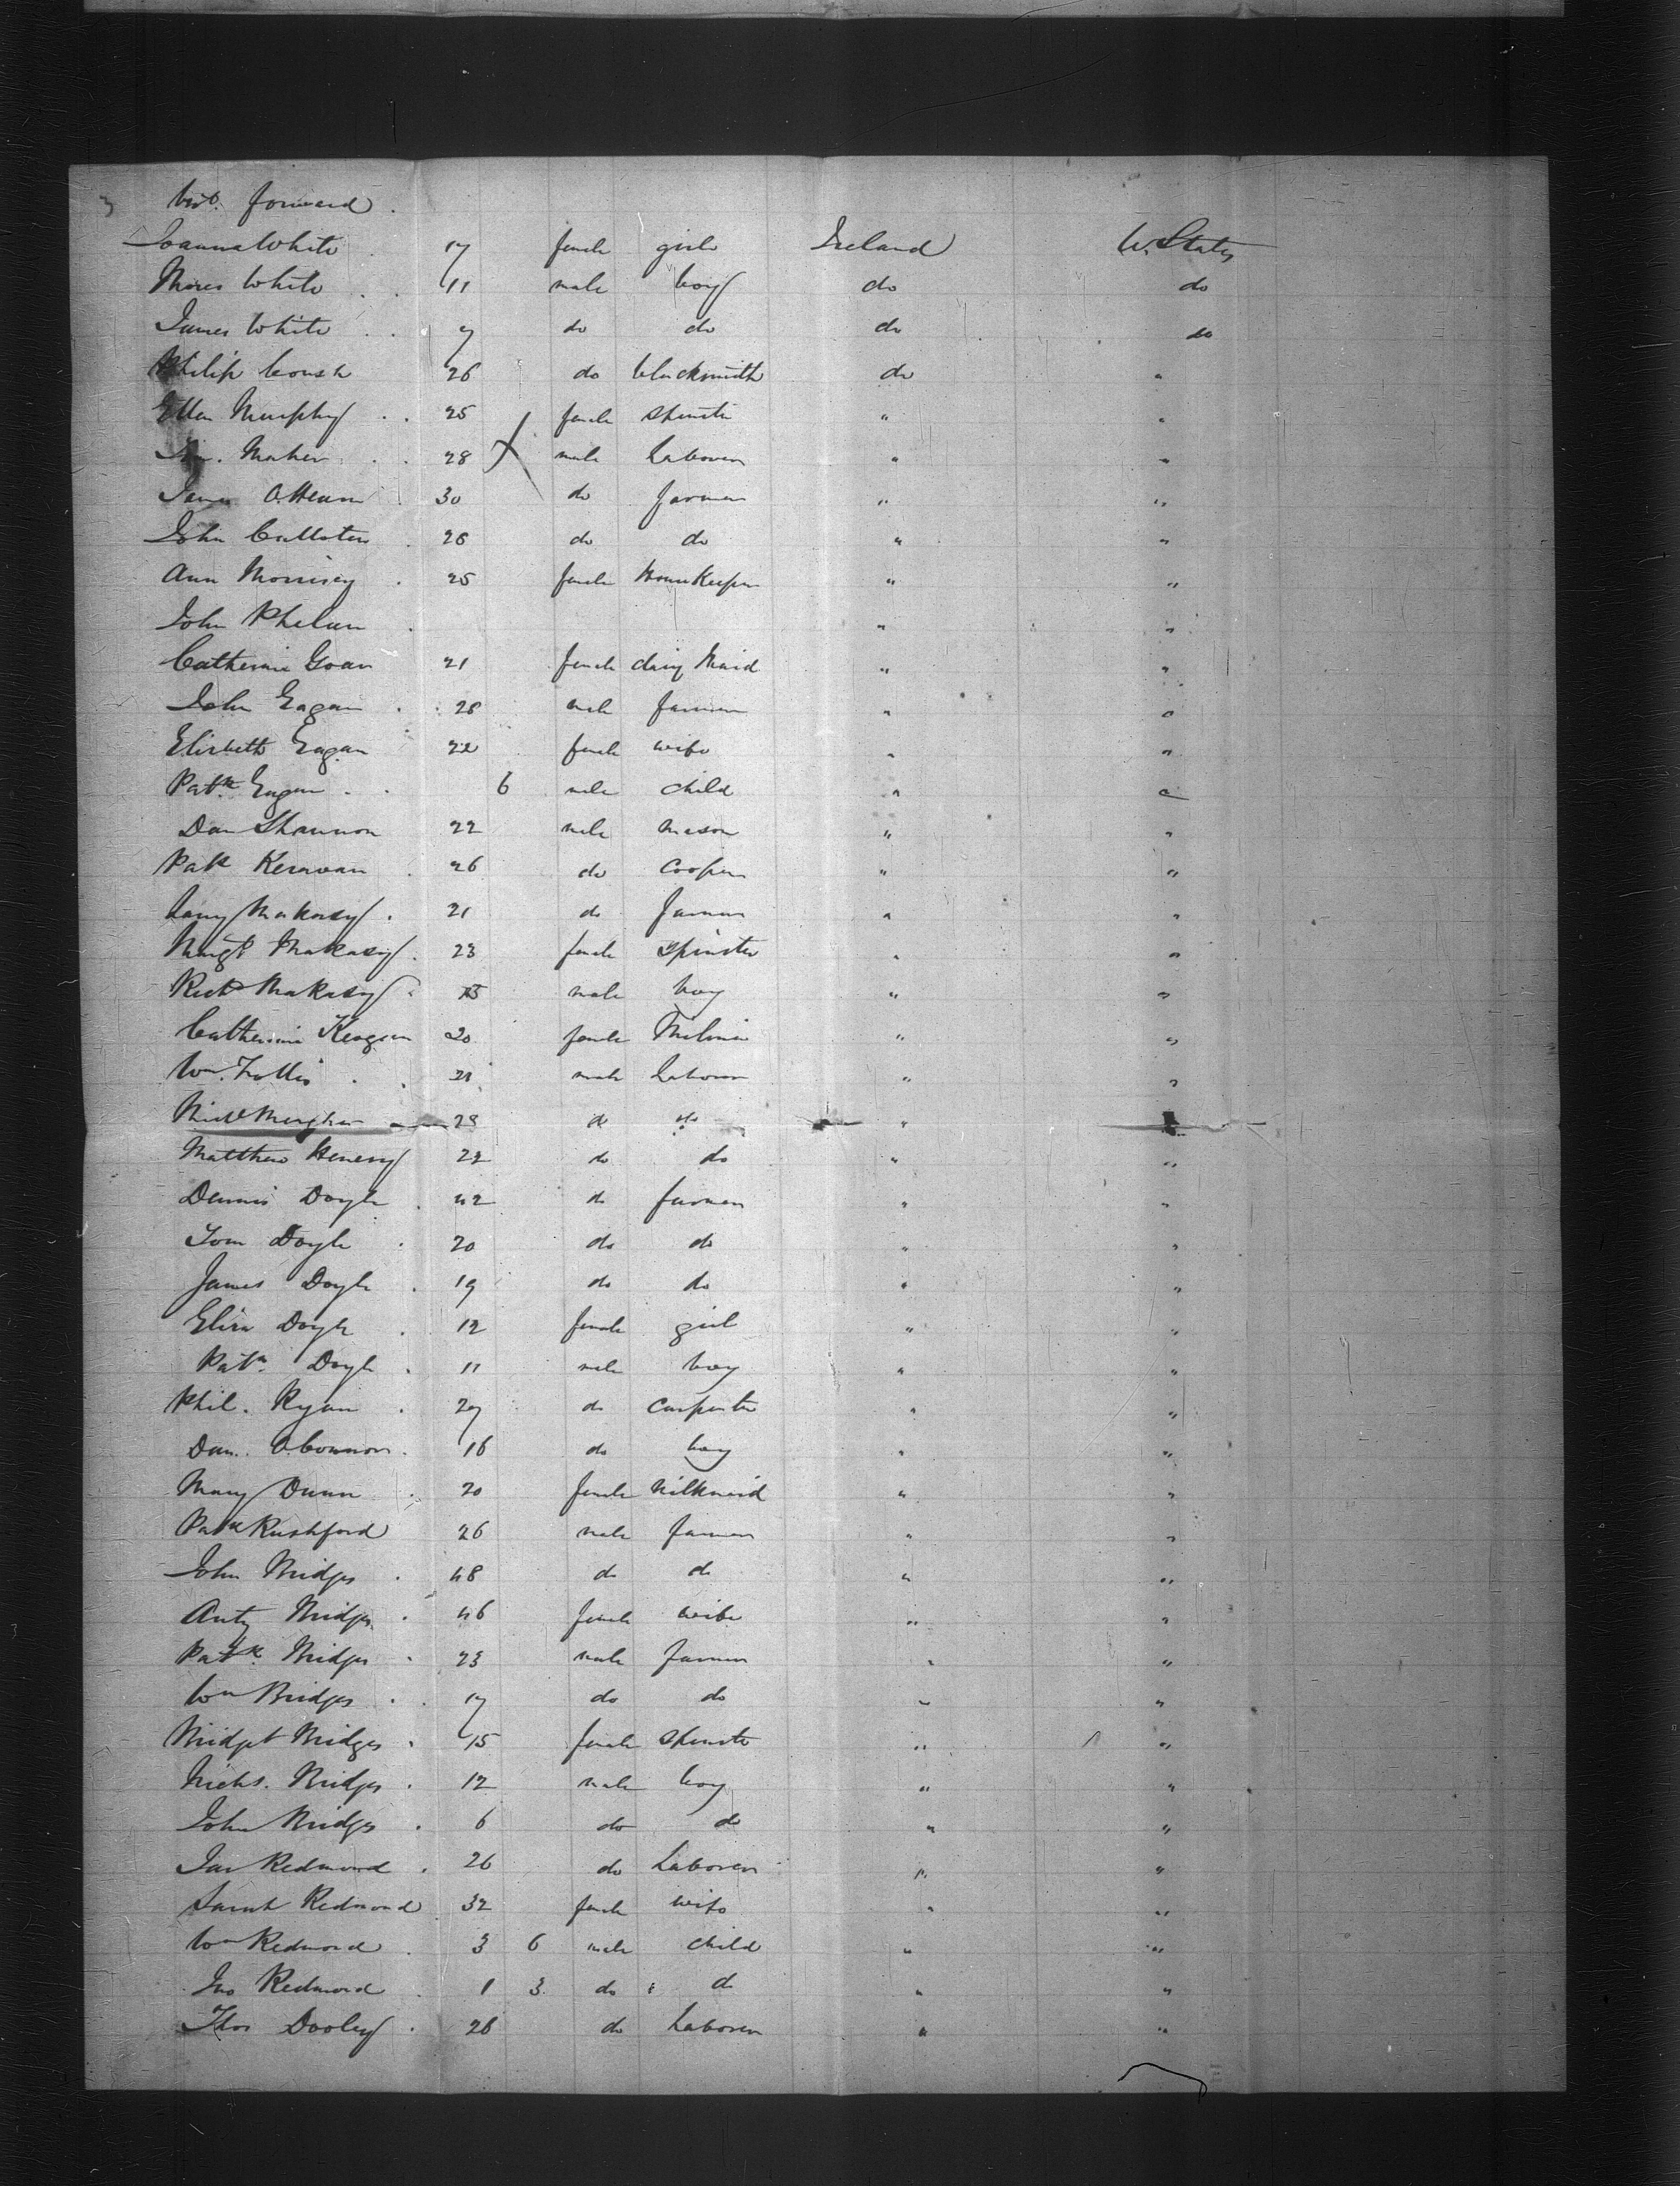 3
brot. forward.
Joanna White 17 female girl Ireland U. States
Moses White 11 male boy do do
James White 7 do do do do
Philip 26 do blacksmith do "
Ellen Murphy 25 female spinster " "
Maher 28 male Laborer " "
James O.Hearn 30 do farmer " "
John 26 do do " "
Ann Morrisey 25 female HouseKeeper " "
John Phelan " "
Catherine Goan 21 female dairy Maid " "
John Eagan 28 male farmer " "
Elizbeth Eagan 22 female wife " "
Patk. Eagan 6 male child " "
Dan Shannon 22 male mason " "
Patk Keravan 26 do Cooper " "
Larry Makasy 21 do farmer " "
Margt. Makasy 23 female Spinster " "
Richd Makasy 15 male boy " "
Catherine Keagan 20 female " "
Wm. 21 male Laborer " "
Michl 23 do do "
Matthew Henesy 22 do do " "
Dennis Doyle 42 do farmer " "
Tom Doyle 20 do do " "
James Doyle 19 do do " "
Eliza Doyle 12 female girl " "
Patk. Doyle 11 male boy " "
Phil. Ryan 27 do Carpenter " "
Dan. O.Connor 16 do boy " "
Mary Dunn 20 female Milkmaid " "
Patk Rushford 26 male farmer " "
John Bridges 48 do do " "
Anty Bridges 46 female wife " "
Patk. Bridges 23 male farmer " "
Wm Bridges 17 do do " "
Bridget Bridges 15 female spinster " "
Nichs. Bridges 12 male boy " "
John Bridges 6 do do " "
Jas Redmond 26 do Laborer " "
Sarah Redmond 32 female wife " "
Wm Redmond 3 6 male child " "
Jno Redmond 1 3 do do " "
Thos Dooley 26 do Laborer " "